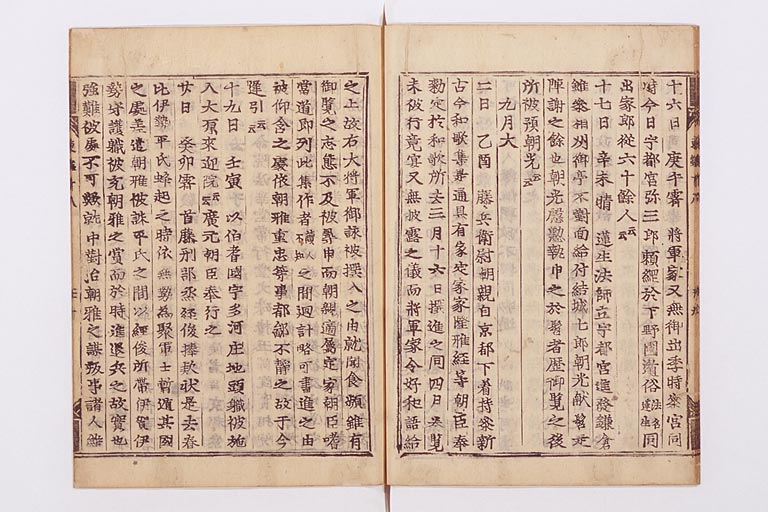 十六日 庚午霽將軍家又無御出季時參宮同
時今日宇都宮弥三郎頼綱於下野國遂俗法名蓮生同
出家郎從六十餘人云々
十七日 辛未晴 蓮生法師立宇都宮進發鎌倉
雖參相州御亭不對面給付結城七郎朝光献髻是
陣謝之餘也朝光慇懃執申之於髻者歴御覽之後
所被預朝光云々
九月大
二日 乙酉 藤兵衛尉朝親自京都下着持參新
古今和歌集是通具有家定家家隆雅經等朝臣奉
勅定於和歌所去三月十六日撰進之同四日奏覽
未被行竟宴又無披露之儀而將軍家令好和語給
之上故右大將軍御詠被撰入之由就聞食頻雖有
御覽之志態不及被尋申而朝親適属定家朝臣嗜
當道即列此集作者讀人不知之間廻計略可書進之由
被仰含之處依朝雅重忠等事都鄙不靜之故于今
遅引云々
十九日 壬寅 以伯耆國宇多河庄地頭職被施
入大原來迎院云々廣元朝臣奉行之
廿日 癸卯霽 首藤刑部丞經俊捧歎状是去春
比伊勢平氏蜂起之時依無勢為聚軍士暫遁其國
之處差遣朝雅被誅平氏之間以經俊所帶伊賀伊
勢守護職被充朝雅之賞而於時進退兵之故實也
強難被處不可歟就中對治朝雅之謀叛事諸人雖